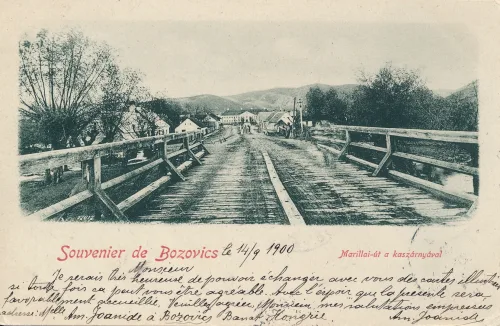 Souvenier de Bozovics le 14/9 1900
Marillai-út a kaszárnyával
Monsieur
Je serais très heureuse de pouvoir échanger avec vous des cartes illustrées
si toute fois ça peut vous être agréable. Avec l'espoir que la présente sera
favorablement accueillie, Veuillez agréer, Monsieur mes salutations empressées
adresse: Melle Am. Joanide à Bozovics Banat Hongrie. Am. Joanide